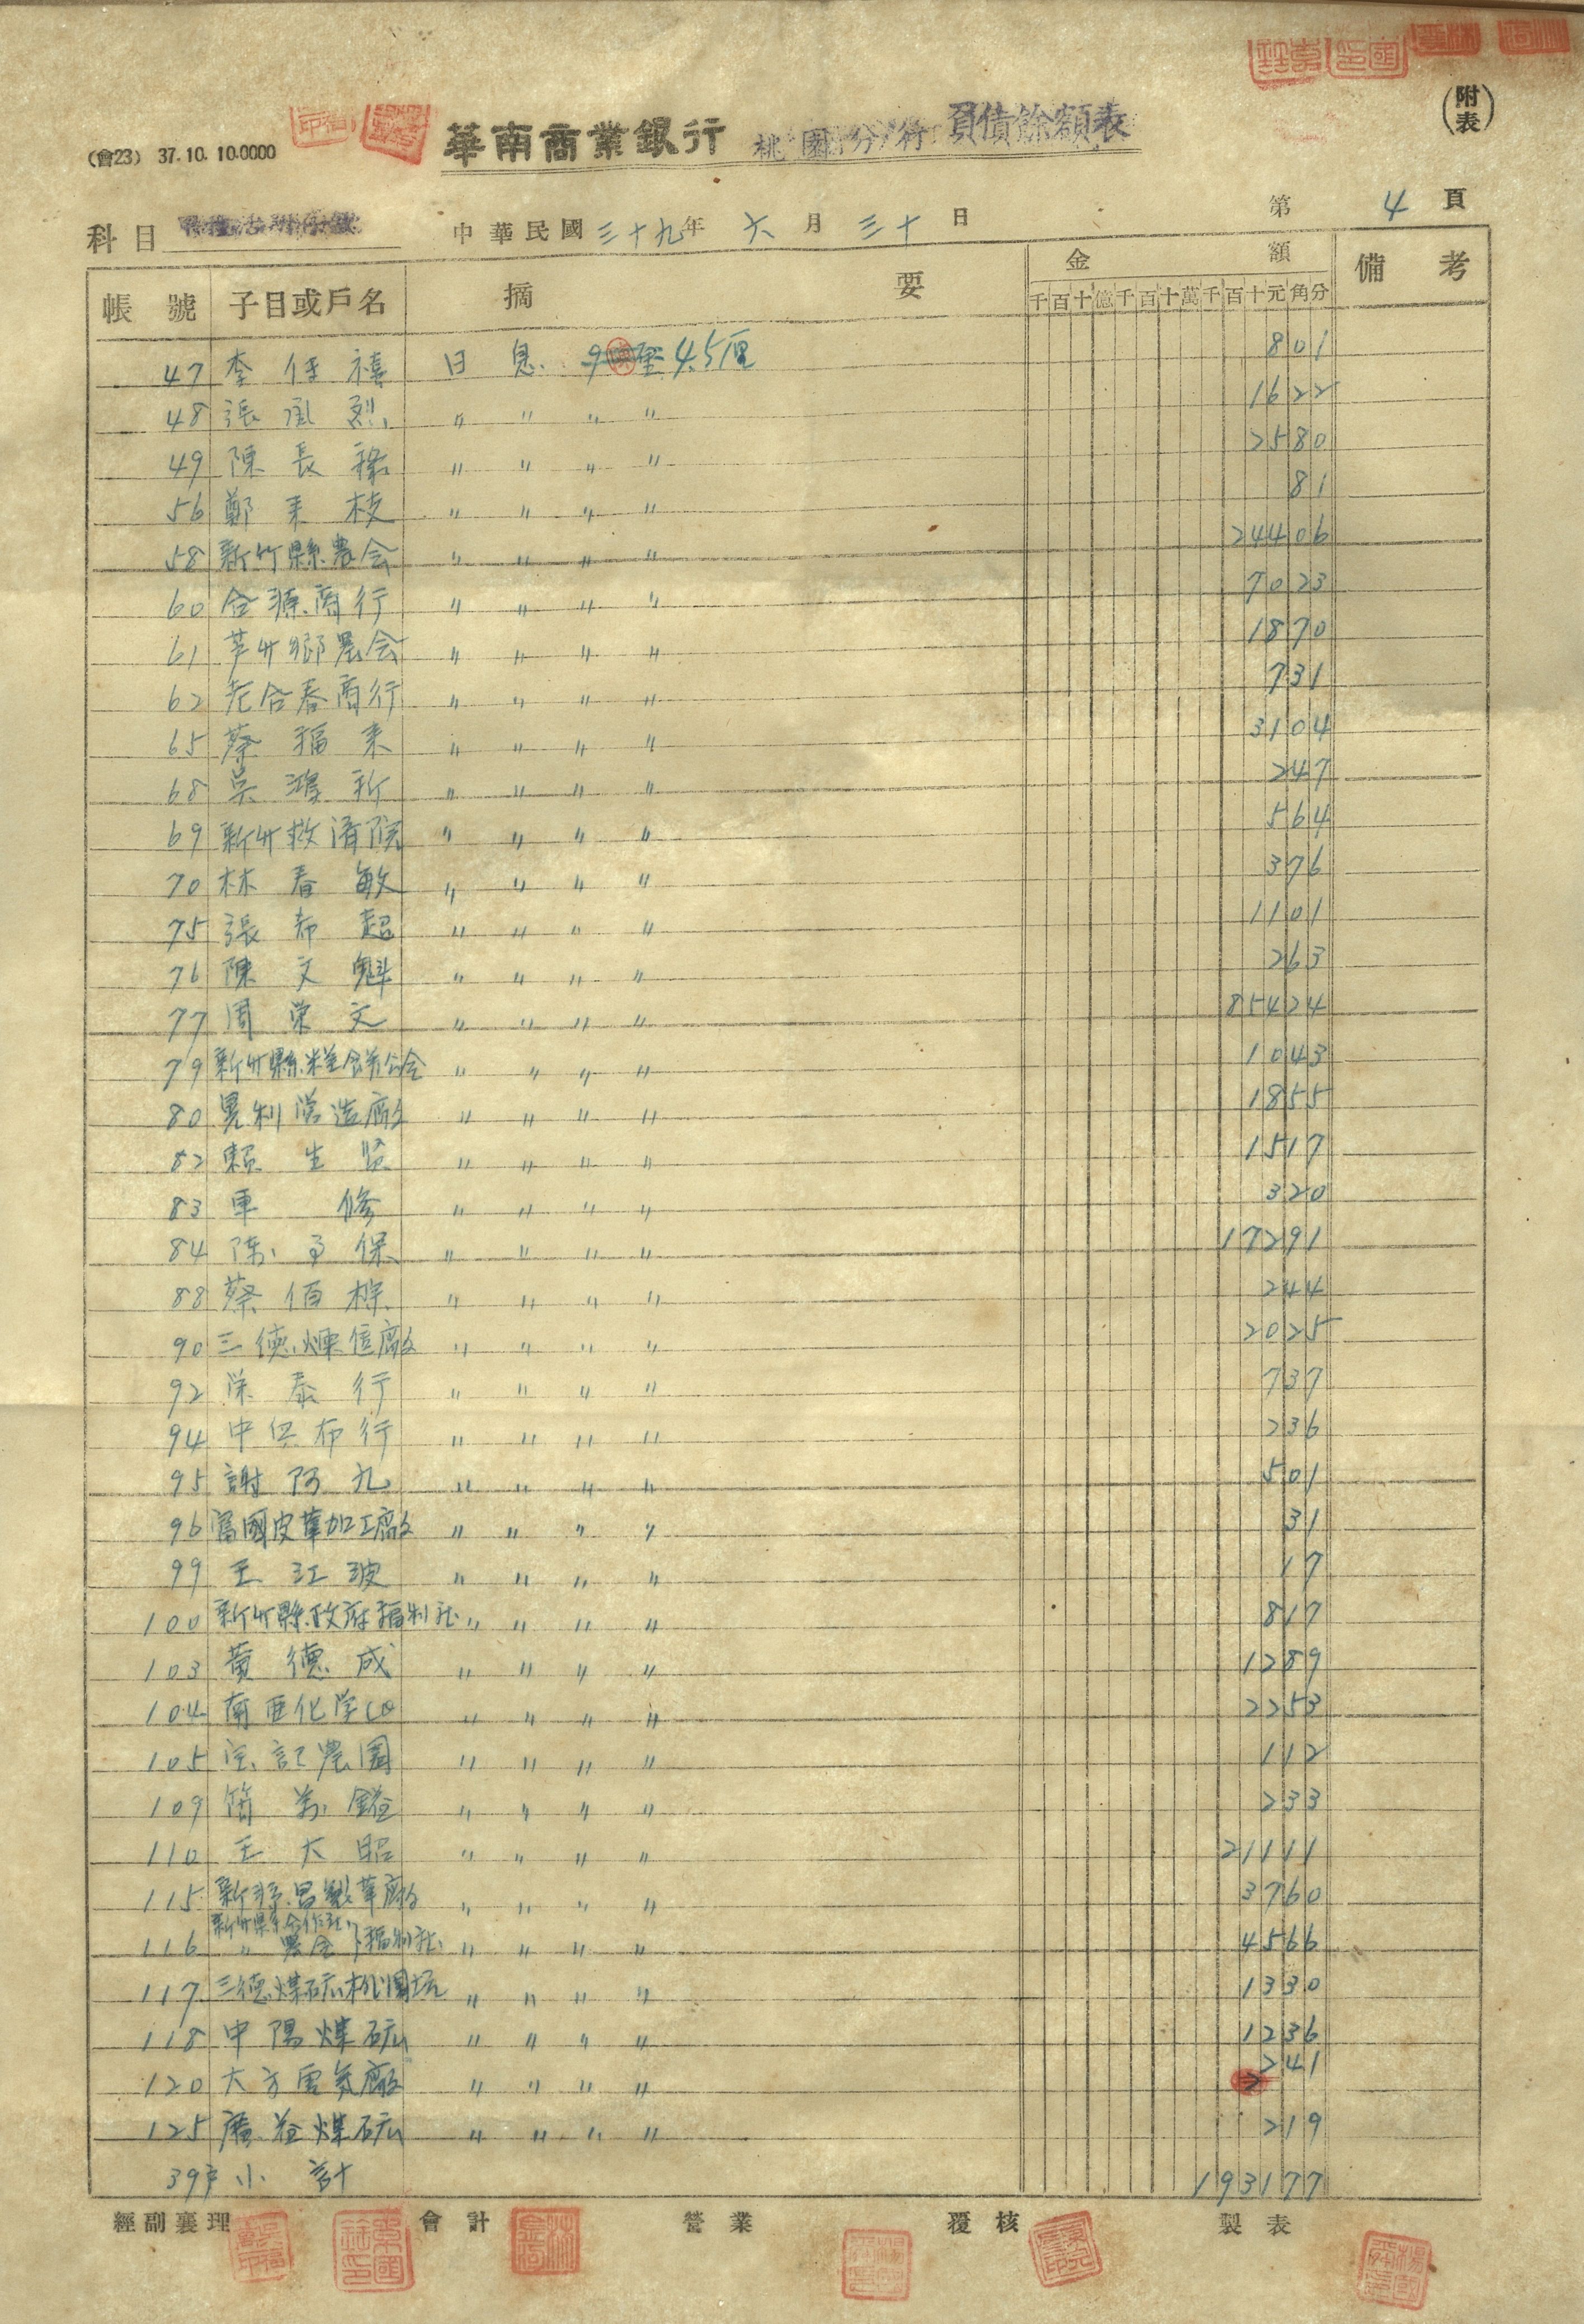 (附表)
(會23) 37.10.10.0000 華南商業銀行 桃園分行 負債餘額表
科目 中華民國三十九年六月三十日 第4頁
帳號 子目或戶名 摘要 金額 備考
千百十億千百十萬千百十元角分
47 李 禧 日息 4.5厘 801
48 張風烈 〃 〃 〃 〃 1622
49 陳長 〃 〃 〃 〃 2580
56 鄭來枝 〃 〃 〃 〃 81
58 新竹縣農会 〃 〃 〃 〃 24406
60 合源商行 〃 〃 〃 〃 7023
61 芦竹鄉農会 〃 〃 〃 〃 1870
62 老合春商行 〃 〃 〃 〃 731
65 蔡福来 〃 〃 〃 〃 3104
68 吳鴻新 〃 〃 〃 〃 247
69 新竹救済院 〃 〃 〃 〃 564
70 林春敏 〃 〃 〃 〃 376
75 張布超 〃 〃 〃 〃 1101
76 陳文魁 〃 〃 〃 〃 263
77 周荣文 〃 〃 〃 〃 85424
79 新竹縣糕餅公会 〃 〃 〃 〃 1043
80 利营造廠 〃 〃 〃 〃 1855
82 賴生 〃 〃 〃 〃 1517
83 軍 修 〃 〃 〃 〃 320
84 陈 保 〃 〃 〃 〃 17291
88 蔡佰樑 〃 〃 〃 〃 244
90 三德煉 廠 〃 〃 〃 〃 2025
92 泰行 〃 〃 〃 〃 737
94 中 布行 〃 〃 〃 〃 236
95 謝阿九 〃 〃 〃 〃 501
96 富國皮革加工廠 〃 〃 〃 〃 31
99 王江波 〃 〃 〃 〃 17
100 新竹縣政府福利社 〃 〃 〃 〃 817
103 黄德成 〃 〃 〃 〃 1289
104 南亜化学 〃 〃 〃 〃 2253
105 記農園 〃 〃 〃 〃 112
109 簡 鎰 〃 〃 〃 〃 233
110 王大昭 〃 〃 〃 〃 21111
115 新源昌製革廠 〃 〃 〃 〃 3760
新竹縣合作社
116 〃 農会 福利社 〃 〃 〃 〃 4566
117 三德煤砿桃園坑 〃 〃 〃 〃 1330
118 中陽煤砿 〃 〃 〃 〃 1236
120 大方電気廠 〃 〃 〃 〃 241
125 廣益煤砿 〃 〃 〃 〃 219
39戶 小計 193177
經副襄理 會計 營業 覆核 製表